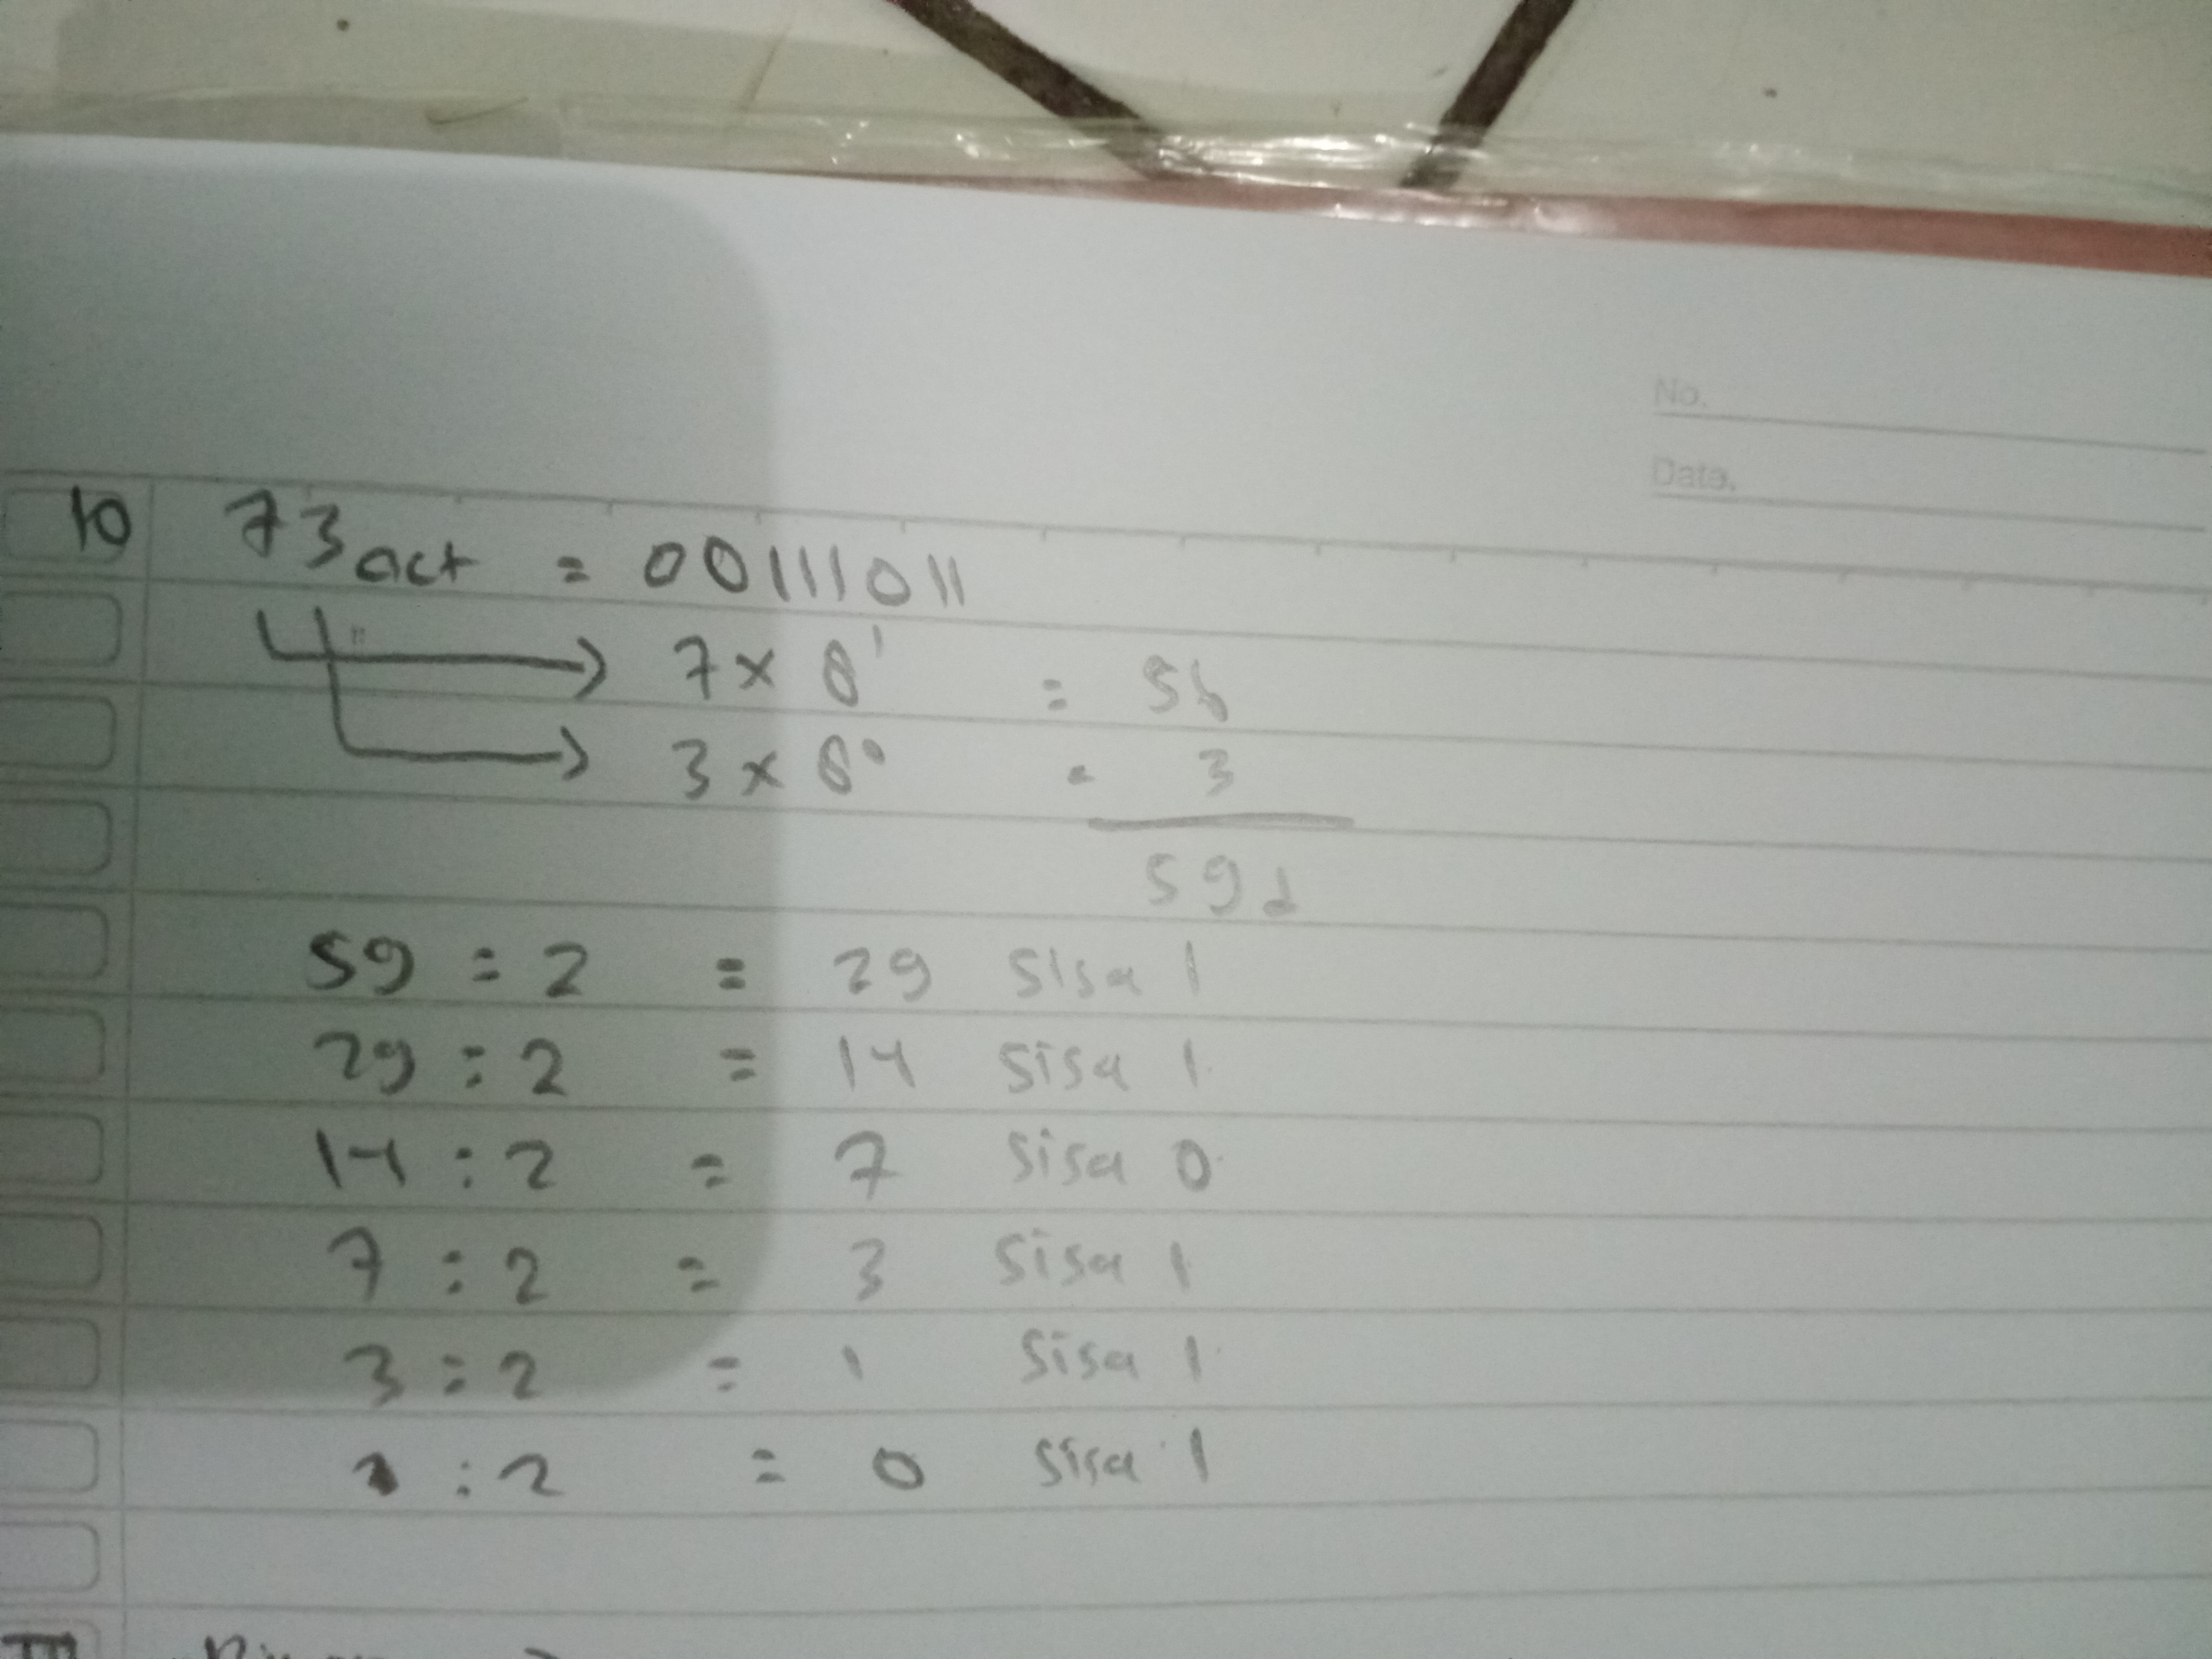 No.
Date.
10 73 oct = 00111011
7 x 8¹ = 56
3 x 8⁰ = 3
59d
59 : 2 = 29 sisa 1
29 : 2 = 14 sisa 1
14 : 2 = 7 sisa 0
7 : 2 = 3 sisa 1
3 : 2 = 1 sisa 1
1 : 2 = 0 sisa 1